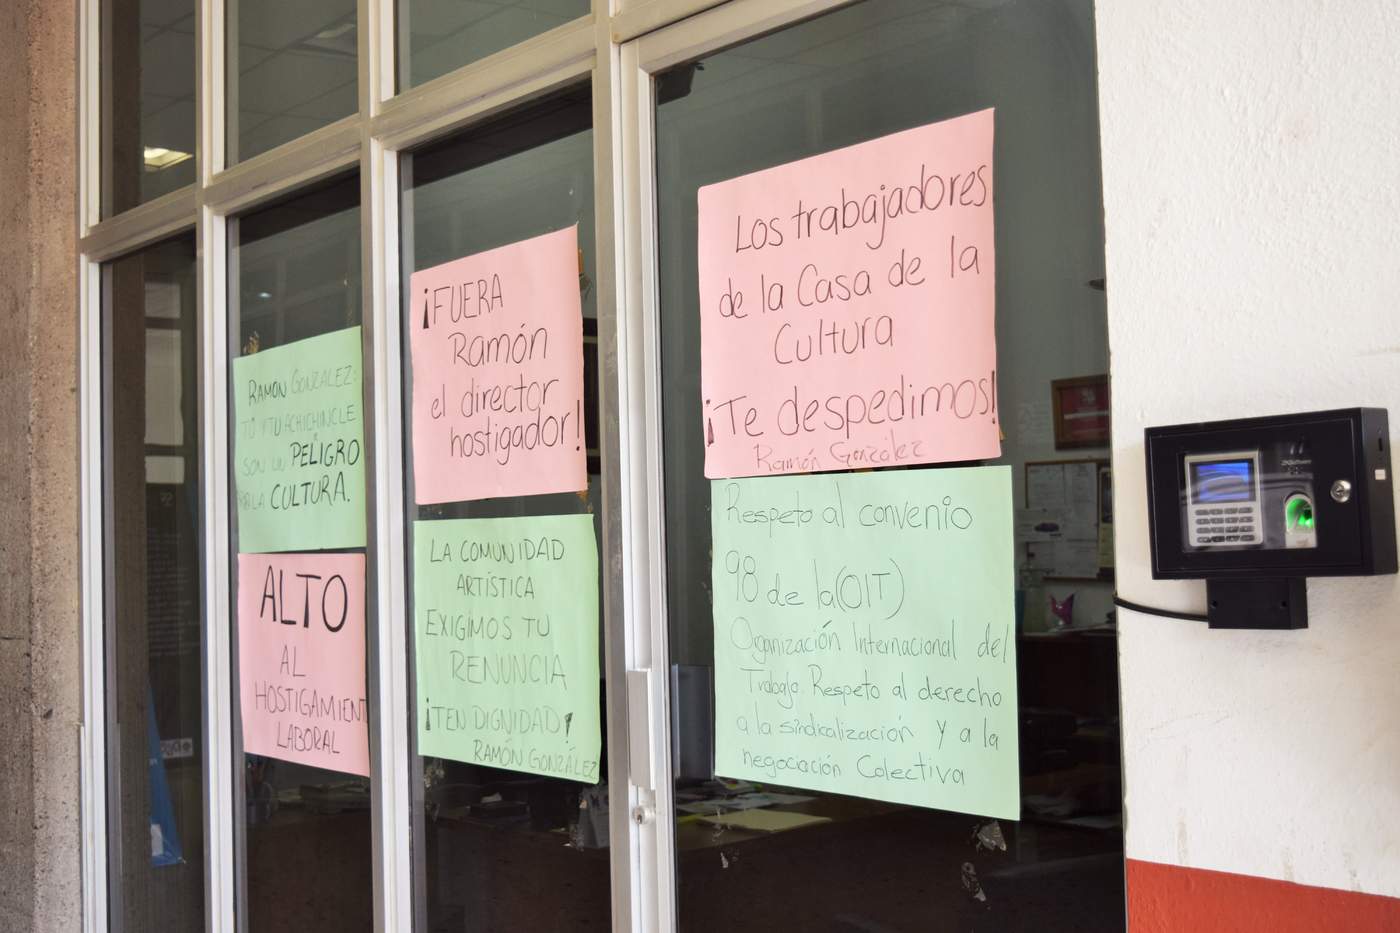 RAMON GONZALEZ:
TÚ Y TU ACHICHINCLE
SON UN PELIGRO
PARA LA CULTURA.
ALTO
AL
HOSTIGAMIENT
LABORAL
¡FUERA
Ramón
el director
hostigador!
LA COMUNIDAD
ARTÍSTICA
EXIGIMOS TU
RENUNCIA
¡TEN DIGNIDAD!
RAMÓN GONZÁLEZ
Los trabajadores
de la Casa de la
Cultura
¡Te despedimos!
Ramón González
Respeto al convenio
98 de la (OIT)
Organización Internacional del
Trabajo. Respeto al derecho
a la sindicalización y a la
negociación Colectiva